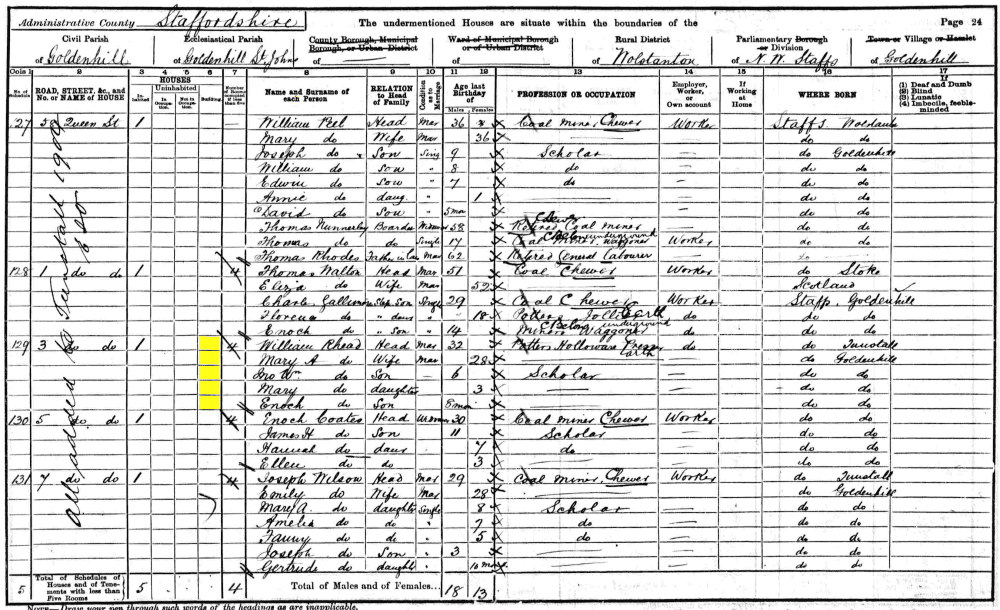 Administrative County Staffordshire The undermentioned Houses are situate within the boundaries of the Page 24
Civil Parish Ecclesiastical Parish County Borough, Municipal Borough, or Urban District Ward of Municipal Borough or of Urban District Rural District Parliamentary Borough or Division Town or Village or Hamlet
of Goldenhill of Goldenhill St Johns of of of Wolstanton of N.W. Staffs of Goldenhill
Cols 1 2 3 4 5 6 7 8 9 10 11 12 13 14 15 16 17
No. of Schedule ROAD, STREET, &c., and No. or NAME of HOUSE HOUSES Inhabited Uninhabited In Occupation. Not in Occupation. Building. Name and Surname of each Person RELATION to Head of Family Condition as to Marriage Age last Birthday of Males Females PROFESSION OR OCCUPATION Employer, Worker, or Own account If Working at Home WHERE BORN (1) Deaf and Dumb (2) Blind (3) Lunatic (4) Imbecile, feeble-minded
127 Queen St 1 William Peel Head Mar 36 Coal Miner Hewer Worker Staffs
Mary do Wife Mar 36 do do
Joseph do Son Sing 9 Scholar do Goldenhill
William do Son " 8 do do do
Edwin do Son " 7 do do do
Annie do daug. 1 do do
David do Son 5 mo do do
Thomas Nunnerley Boarder 58 Retired Coal miner Hewer do do
Thomas do do Single 17 Waggoner Below underground Worker do do
Thomas Rhodes Father in law Mar 62 Retired General Labourer do
128 1 do do 1 4 Thomas Walton Head Mar 51 Coal Hewer Worker do Stoke
do Wife Mar 52 Scotland
Step Son Single 29 Coal Hewer Worker Staff. Goldenhill
do " daur 18 Potters Earth do do do
Enoch do " Son " 14 Miners Waggoner Below underground do do do
129 3 do do 1 4 William Rhead Head Mar 32 Potters Hollowware Presser Earth do do Tunstall
Mary A do Wife Mar 28 do Goldenhill
Jno Wm do Son 6 Scholar do do
Mary do daughter 3 do do
Enoch do Son 8 mo do do
130 5 do do 1 4 Enoch Coates Head Widower 30 Coal miner Hewer Worker do do
James H do Son 11 Scholar do do
Hannah do daur 7 do do do
Ellen do do 3 do do
131 7 do do 1 4 Joseph Wilson Head Mar 29 Coal miner Hewer Worker do Tunstall
Emily do Wife Mar 28 do Goldenhill
Mary A. do daughter Single 8 Scholar do do
Amelia do do " 7 do do do
Fanny do do " 5 do do do
Joseph do Son " 3 do do
Gertrude do daught " 10 mo do do
all added to Tunstall
5 Total of Schedules of Houses and of Tenements with less than Five Rooms 5 4 Total of Males and of Females... 18 13
NOTE—Draw your pen through such words of the headings as are inapplicable.